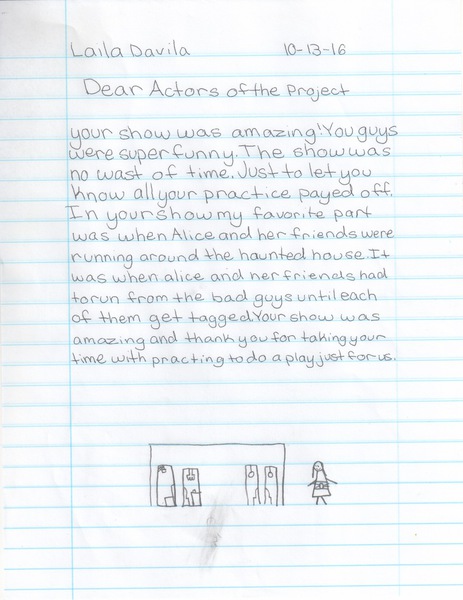 Laila Davila 10-13-16
Dear Actors of the Project
your show was amazing! You guys
were super funny. The show was
no wast of time. Just to let you
know all your practice payed off.
In your show my favorite part
was when Alice and her friends were
running around the haunted house. It
was when alice and her friends had
to run from the bad guys until each
of them get tagged. Your show was
amazing and thank you for taking your
time with practing to do a play just for us.